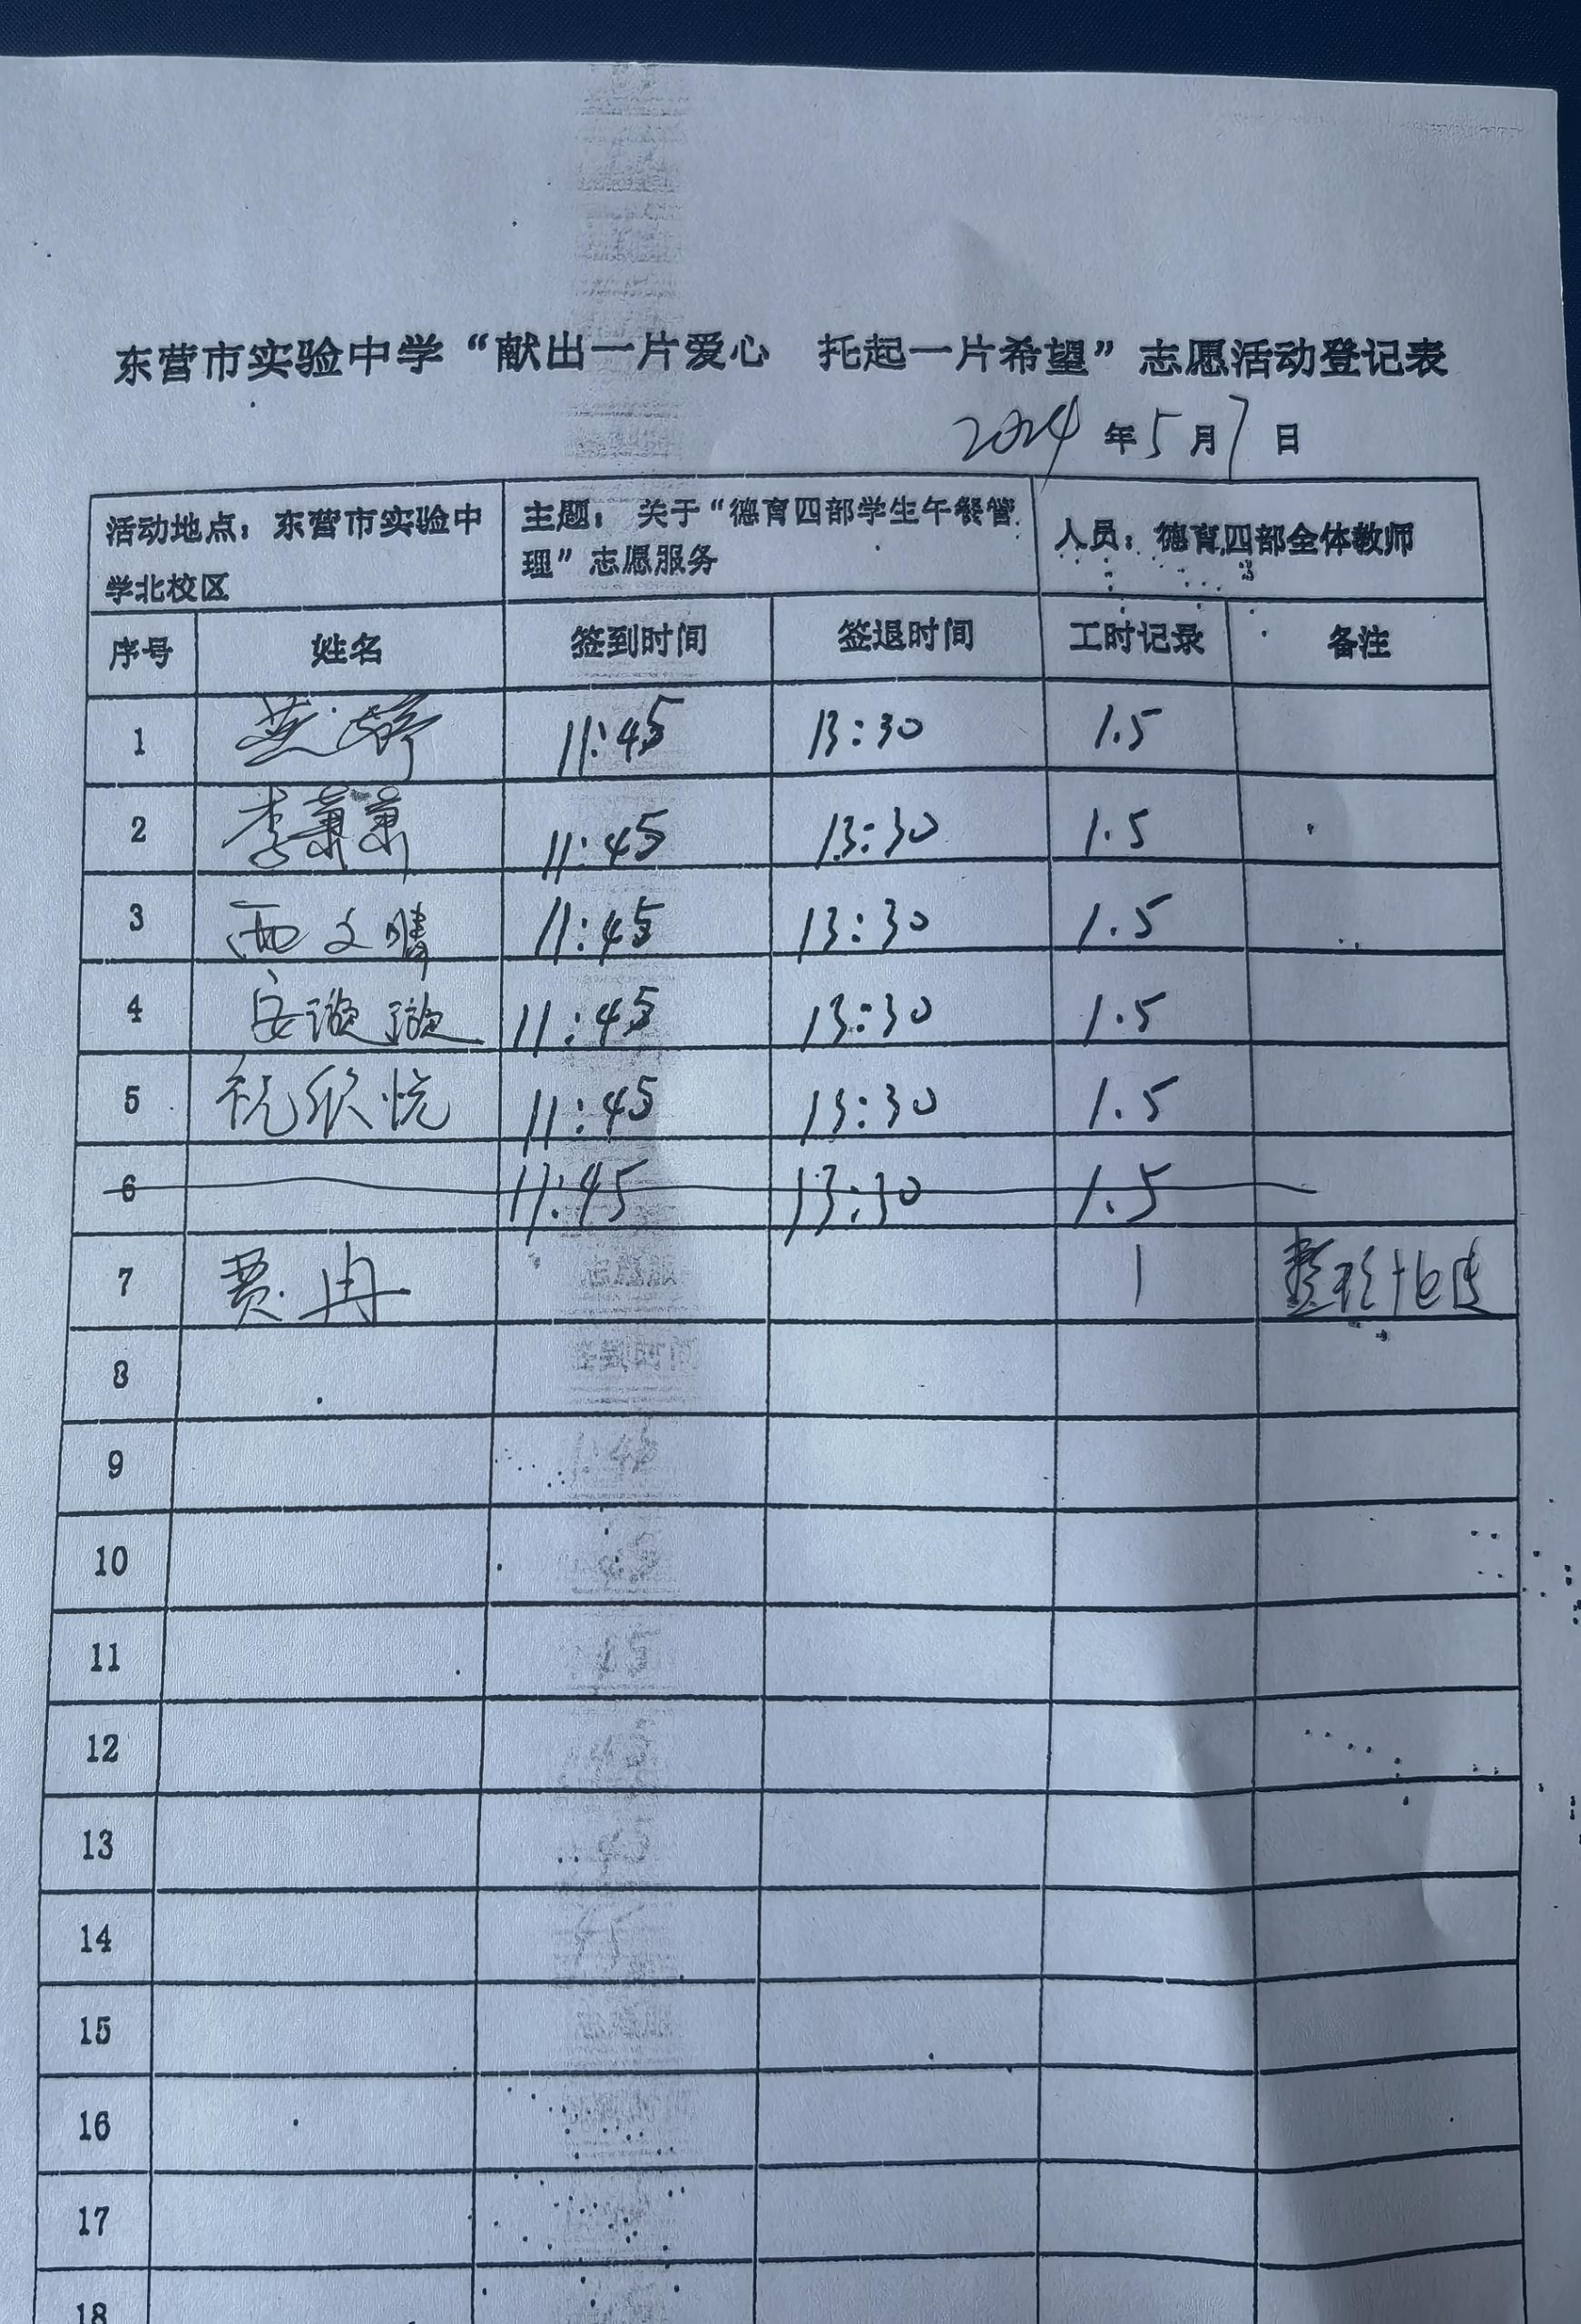 东营市实验中学“献出一片爱心 托起一片希望”志愿活动登记表
2024年5月7日
活动地点：东营市实验中学北校区 主题：关于“德育四部学生午餐管理”志愿服务 人员：德育四部全体教师
序号 姓名 签到时间 签退时间 工时记录 备注
1 11:45 13:30 1.5
2 李萧萧 11:45 13:30 1.5
3 西文晴 11:45 13:30 1.5
4 安璇璇 11:45 13:30 1.5
5 祝欣悦 11:45 13:30 1.5
6 11:45 13:30 1.5
7 费冉 1
8
9
10
11
12
13
14
15
16
17
18